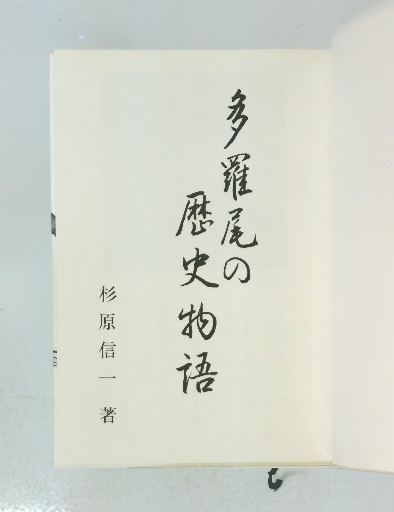 多羅尾の
歴史物語
杉原信一 著